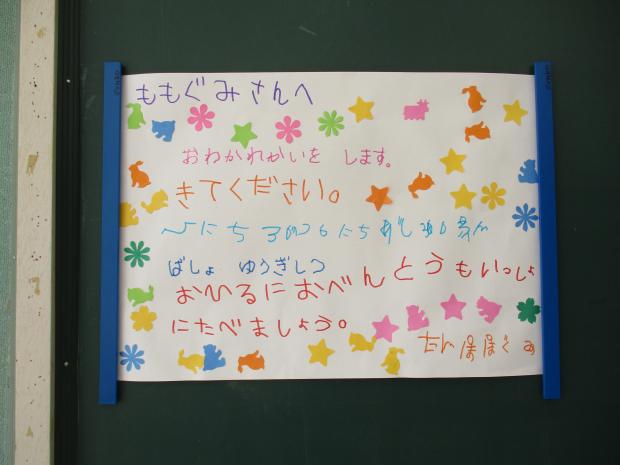 ももぐみさんへ
おわかれかいを します。
きてください。
にち がつ にち
ばしょ ゆうぎしつ
おひるにおべんとうもいっしょ
にたべましょう。
たんぽぽぐみ